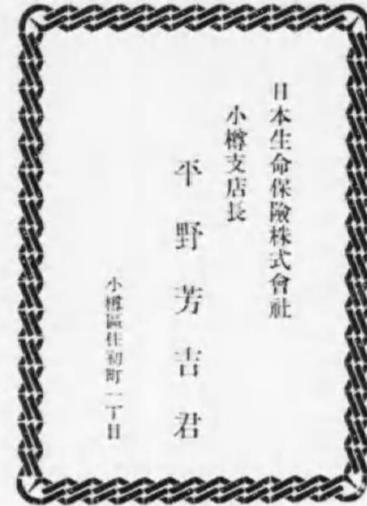 日本生命保險株式會社
小樽支店長
平野芳吉君
小樽區住初町一丁目